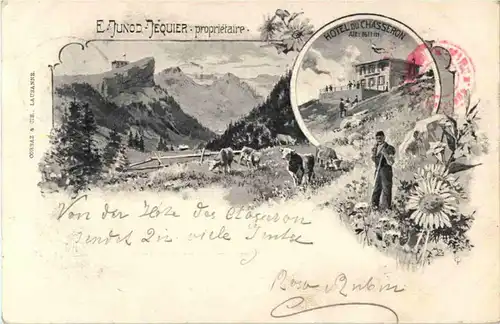 E. JUNOD-JÉQUIER - propriétaire -
HÔTEL DU CHASSERON
Alt: 1611 m
CORBAZ & CIE., LAUSANNE.
Von der Höhe des Chasseron
sendet Dir viele
Rosa Rubin